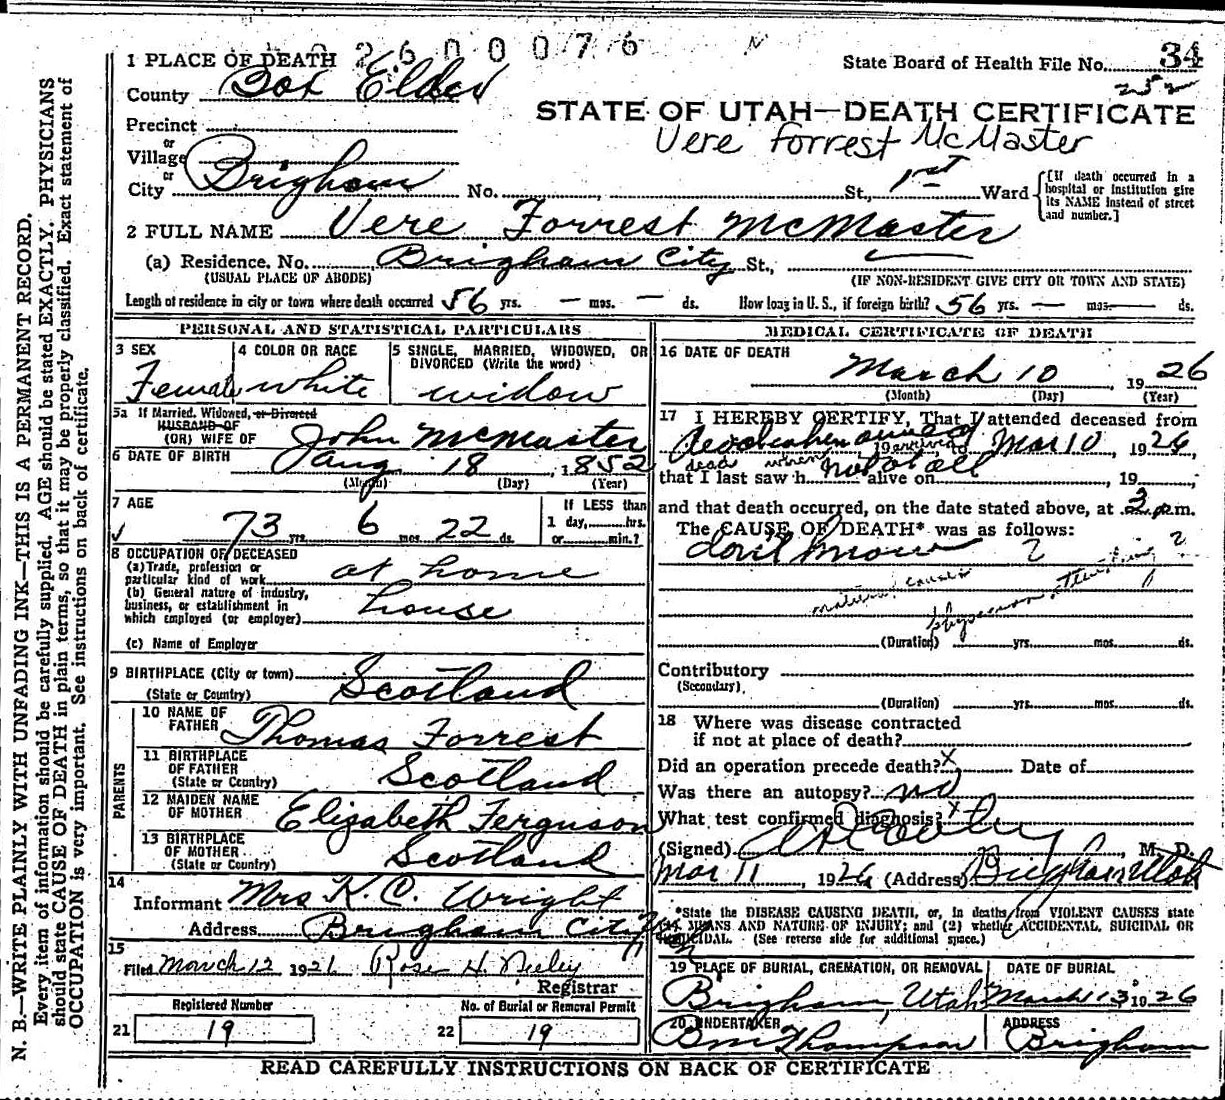 2600076
1 PLACE OF DEATH
State Board of Health File No. 34
252
County Box Elder
STATE OF UTAH—DEATH CERTIFICATE
Vere Forrest McMaster
Precinct
or
Village
or
City Brigham No. St., 1st Ward
[If death occurred in a
hospital or institution give
its NAME instead of street
and number.]
2 FULL NAME Vere Forrest McMaster
(a) Residence, No. Brigham City St.,
(USUAL PLACE OF ABODE) (IF NON-RESIDENT GIVE CITY OR TOWN AND STATE)
Length of residence in city or town where death occurred 56 yrs. — mos. — ds. How long in U. S., if foreign birth? 56 yrs. — mos. — ds.
PERSONAL AND STATISTICAL PARTICULARS
3 SEX
Female
4 COLOR OR RACE
white
5 SINGLE, MARRIED, WIDOWED, OR
DIVORCED (Write the word)
widow
5a If Married, Widowed, or Divorced
HUSBAND OF
(OR) WIFE OF John McMaster
6 DATE OF BIRTH Aug 18 1852
(Month) (Day) (Year)
7 AGE
73 yrs. 6 mos. 22 ds.
If LESS than
1 day, hrs.
or min.?
8 OCCUPATION OF DECEASED
(a) Trade, profession or
particular kind of work at home
(b) General nature of industry,
business, or establishment in
which employed (or employer) house
(c) Name of Employer
9 BIRTHPLACE (City or town)
(State or Country) Scotland
PARENTS
10 NAME OF
FATHER Thomas Forrest
11 BIRTHPLACE
OF FATHER
(State or Country) Scotland
12 MAIDEN NAME
OF MOTHER Elizabeth Ferguson
13 BIRTHPLACE
OF MOTHER
(State or Country) Scotland
14
Informant Mrs K. C. Wright
Address Brigham City
15
Filed March 12 1926 Rose H. Neeley
Registrar
Registered Number
21 19
No. of Burial or Removal Permit
22 19
MEDICAL CERTIFICATE OF DEATH
16 DATE OF DEATH
March 10, 1926
(Month) (Day) (Year)
17 I HEREBY CERTIFY, That I attended deceased from
dead when I arrived Mar 10, 1926,
that I last saw h alive on not at all, 19 ,
and that death occurred, on the date stated above, at 3 p.m.
The CAUSE OF DEATH* was as follows:
don't know ?
natural causes
physician attending ?
(Duration) yrs. mos. ds.
Contributory
(Secondary)
(Duration) yrs. mos. ds.
18 Where was disease contracted
if not at place of death?
Did an operation precede death? x Date of
Was there an autopsy? no
What test confirmed diagnosis? x
(Signed) M. D.
Mar 11 1926 (Address) Brigham Utah
*State the DISEASE CAUSING DEATH, or, in deaths from VIOLENT CAUSES state
(1) MEANS AND NATURE OF INJURY; and (2) whether ACCIDENTAL, SUICIDAL OR
HOMICIDAL. (See reverse side for additional space.)
19 PLACE OF BURIAL, CREMATION, OR REMOVAL
Brigham, Utah
DATE OF BURIAL
March 13 1926
20 UNDERTAKER
Thompson
ADDRESS
Brigham
READ CAREFULLY INSTRUCTIONS ON BACK OF CERTIFICATE
N. B.—WRITE PLAINLY WITH UNFADING INK—THIS IS A PERMANENT RECORD.
Every item of information should be carefully supplied. AGE should be stated EXACTLY. PHYSICIANS
should state CAUSE OF DEATH in plain terms, so that it may be properly classified. Exact statement of
OCCUPATION is very important. See instructions on back of certificate.